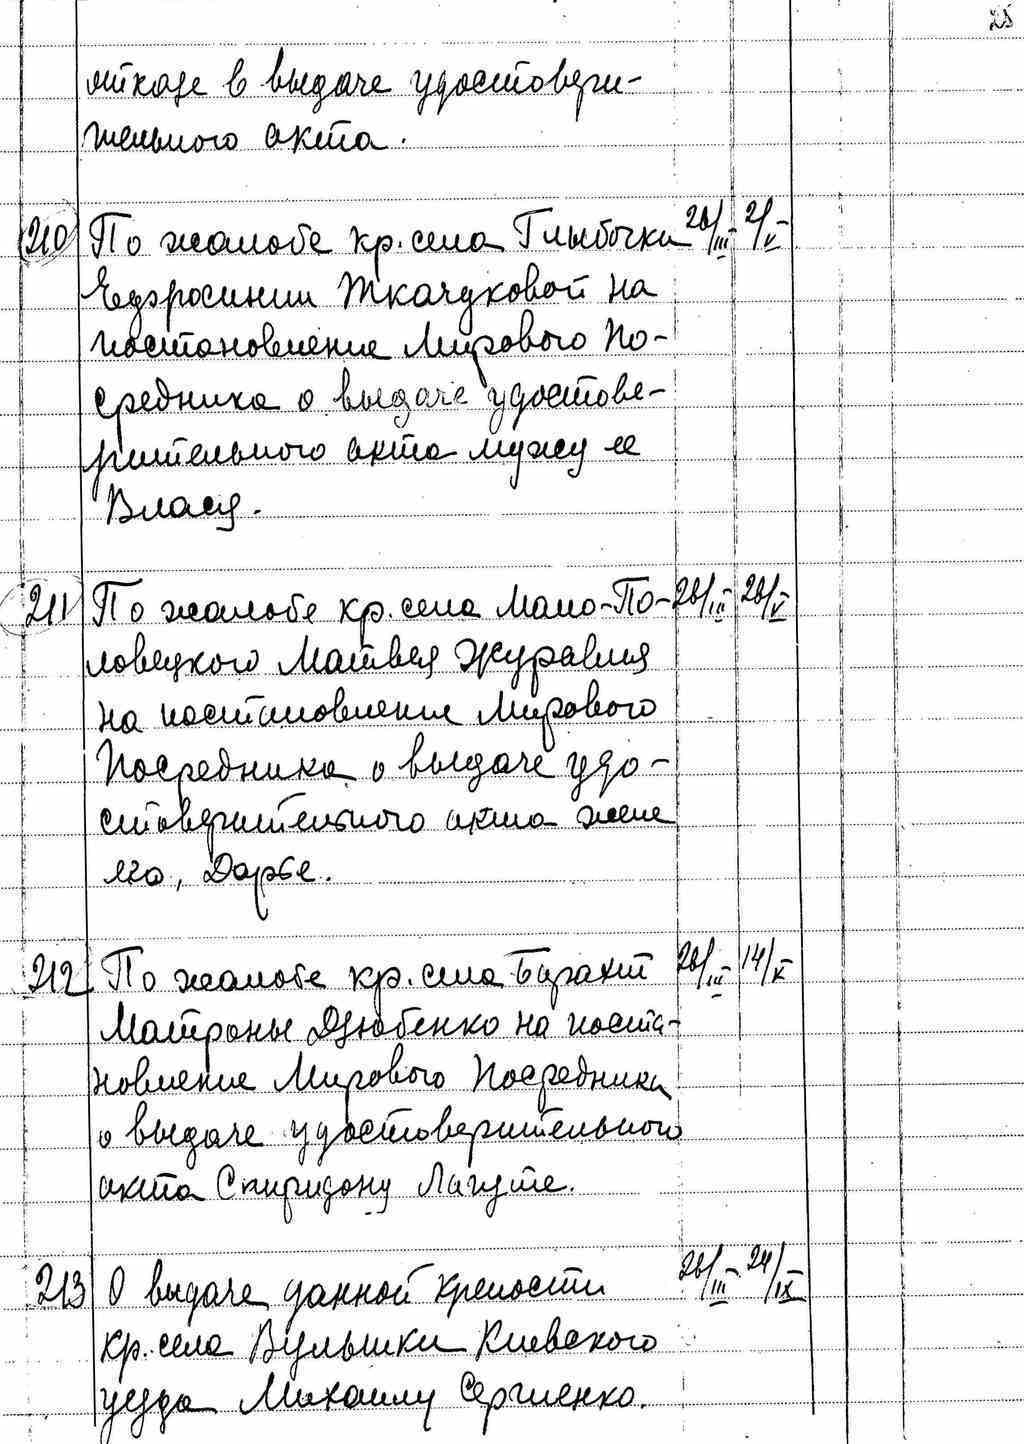 25
отказе в выдаче удостовери-
тельного акта.
210 По жалобе кр. села Глыбочки 26/III 2/V
Евфросинии Ткачуковой на
постановление Мирового По-
средника о выдаче удостове-
рительного акта мужу ее
Власу.
211 По жалобе кр. села Мало-По- 26/III 26/V
ловецкого Матвея Журавля
на постановление Мирового
Посредника о выдаче удо-
стоверительного акта жене
его, Дарье.
212 По жалобе кр. села Бугаит 26/III 14/X
Матроны Дзюбенко на поста-
новление Мирового Посредника
о выдаче удостоверительного
акта Спиридону Лагуте.
213 О выдаче данной крепости 26/III 24/IX
кр. села Вульшки Киевского
уезда Михаилу Сергиенко.